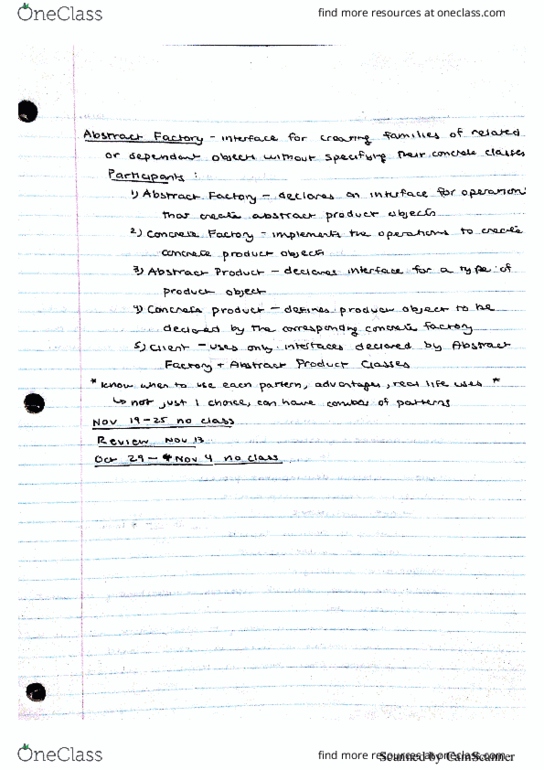 OneClass
find more resources at oneclass.com
Abstract Factory - interface for creating families of related
or dependent objects without specifying their concrete classes
Participants :
1) Abstract Factory - declares an interface for operation
that create abstract product objects
2) Concrete Factory - implements the operations to create
concrete product objects
3) Abstract Product - declares interface for a type of
product object
4) Concrete product - defines product object to be
declared by the corresponding concrete factory
5) Client - uses only interfaces declared by Abstract
Factory + Abstract Product Classes
* Know when to use each pattern, advantages, real life uses *
↳ not just 1 choice, can have combo of patterns
Nov 19-25 no class
Review Nov 13
Oct 29 - Nov 4 no class
OneClass
find more resources at oneclass.com
Scanned by CamScanner